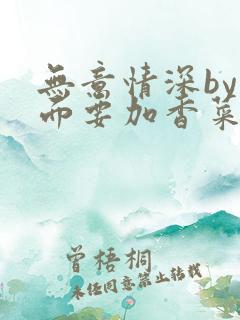 無意情深by
而要加香菜
曾梧桐
未经同意禁止转载